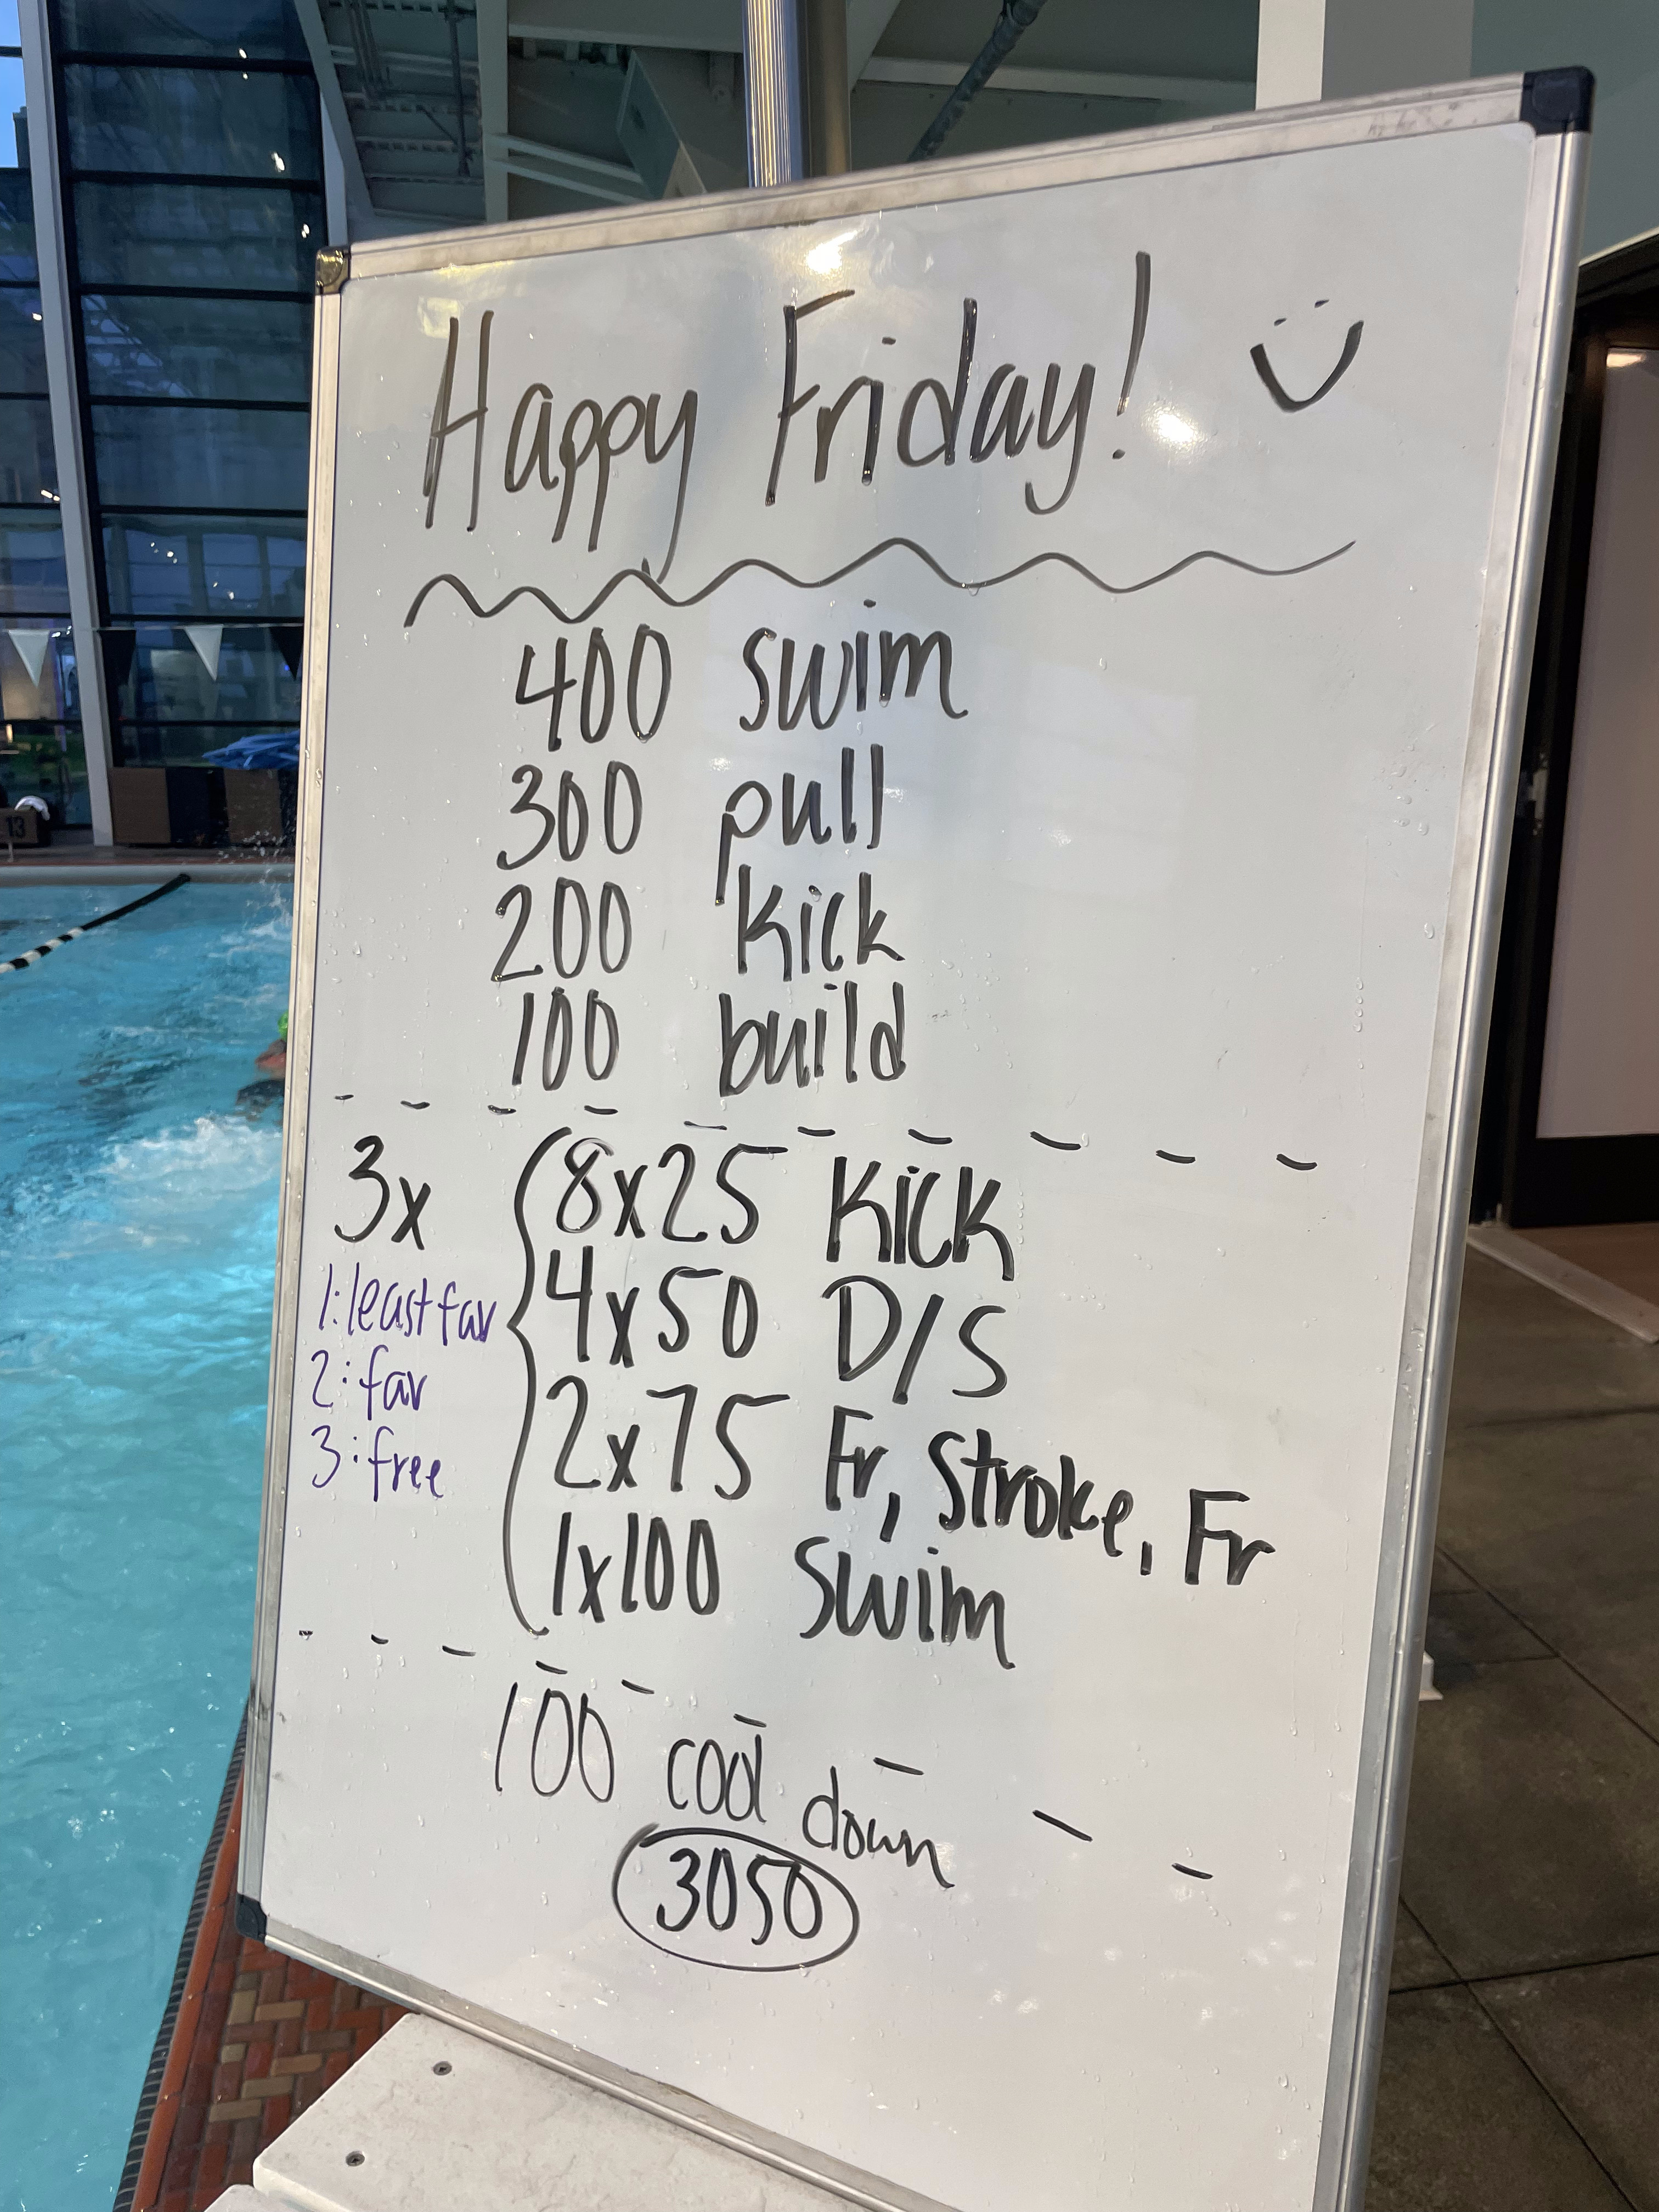 Happy Friday!
400 swim
300 pull
200 Kick
100 build
3x
8x25 Kick
4x50 D/S
2x75 Fr, Stroke, Fr
1x100 Swim
1: least fav
2: fav
3: free
100 cool down
3050
13